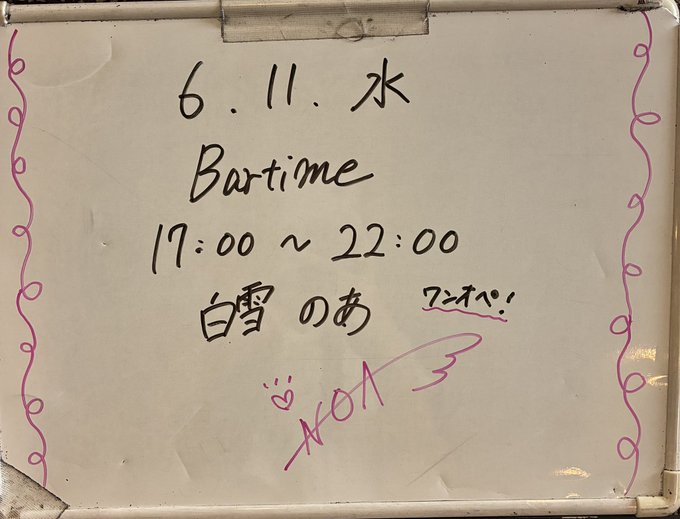 6.11.水
Bartime
17:00~22:00
白雪 のあ ワンオペ!
NOA